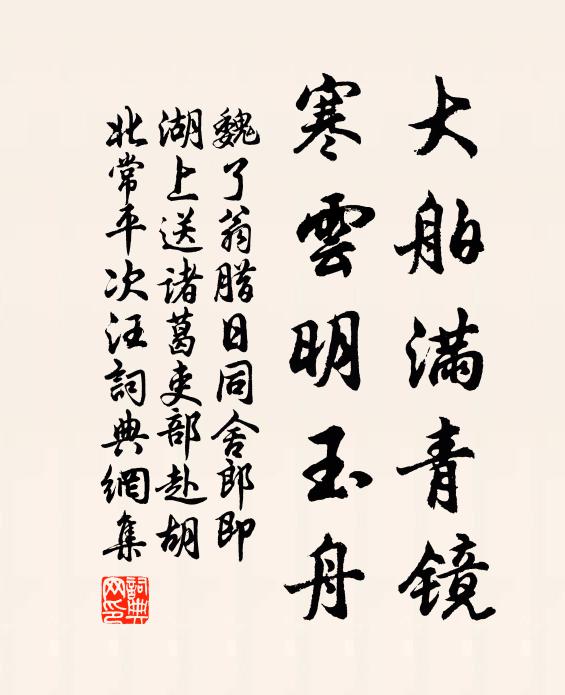 大舶满青镜
寒雲明玉舟
魏了翁腊日同舍郎即
湖上送诸葛吏部赴胡
北常平次汪詞典網集
詞典網印